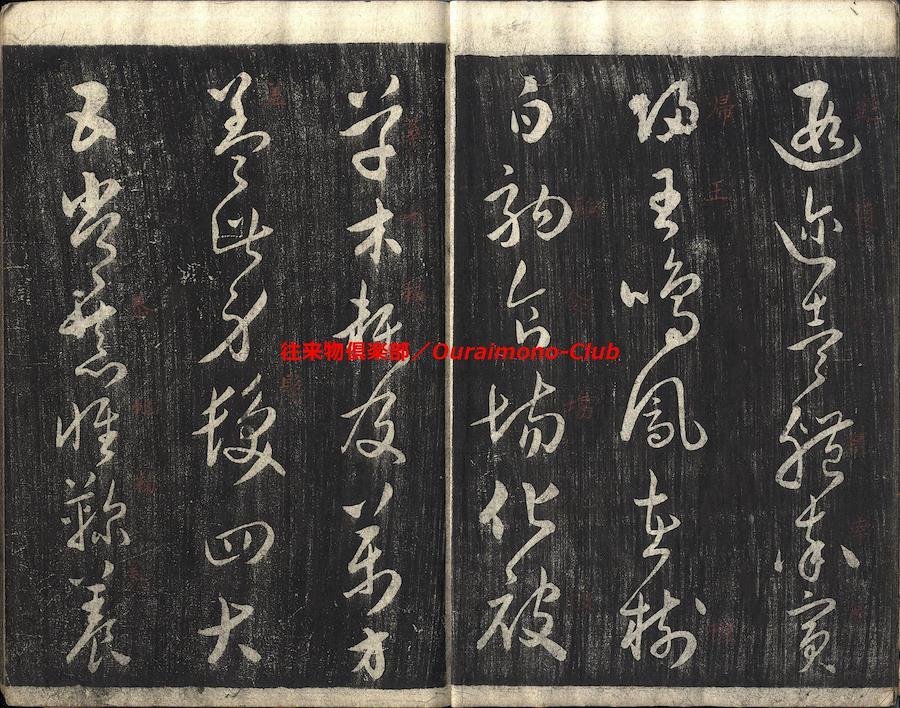 遐迩壹體率賓
歸王鳴鳳在樹
白駒食場化被
草木賴及萬方
蓋此身髮四大
五常恭惟鞠養
往来物倶楽部／Ouraimono-Club